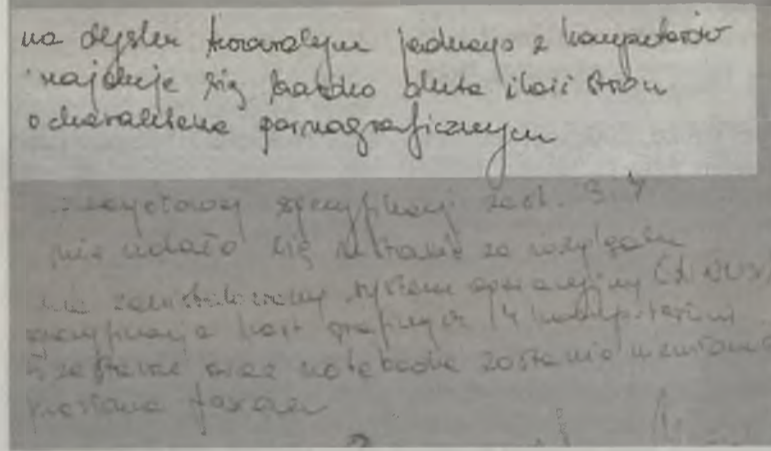 na dysku twardym jednego z komputerów
znajduje się bardzo duża ilość stron
o charakterze pornograficznym
specyfikacji zest. 3.4
nie udało się ustalić ze względu
na zainstalowany system operacyjny (LINUX)
specyfikacja kart graficznych 14 komputerów
zestawu oraz notebooka zostanie
przesłana faxem